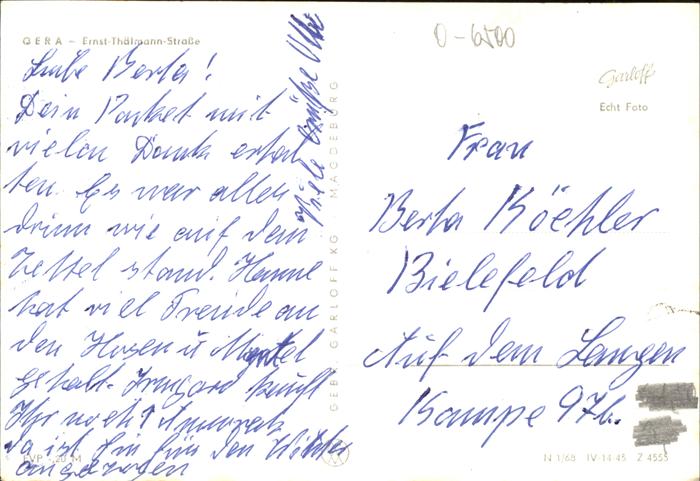 GERA – Ernst-Thälmann-Straße
O-6500
Garloff
Echt Foto
Liebe Berta!
Dein Packet mit
vielen Dank erhal
ten. Es war alles
drinn wie auf dem
Zettel stand. Hanne
hat viel Freude an
den Hosen u Mantel
gehabt. Irmgard kauft
Ihr noch 1 Anorak
da ist Sie für den Winter
angezogen
Viele Grüße
GEBR. GARLOFF KG · MAGDEBURG
Frau
Berta Köehler
Bielefeld
Auf dem Langen
Kampe 97b.
EVP -,20 M
N 1/68 IV-14-45 Z 4555